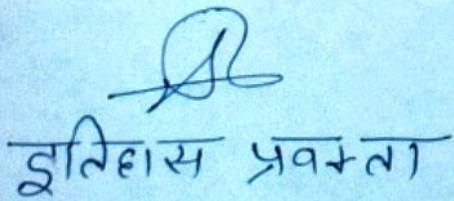 इतिहास प्रवक्ता